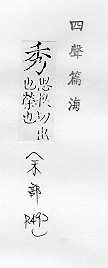 四聲篇海
秀 思救切出
也榮也
(禾部
P.492)